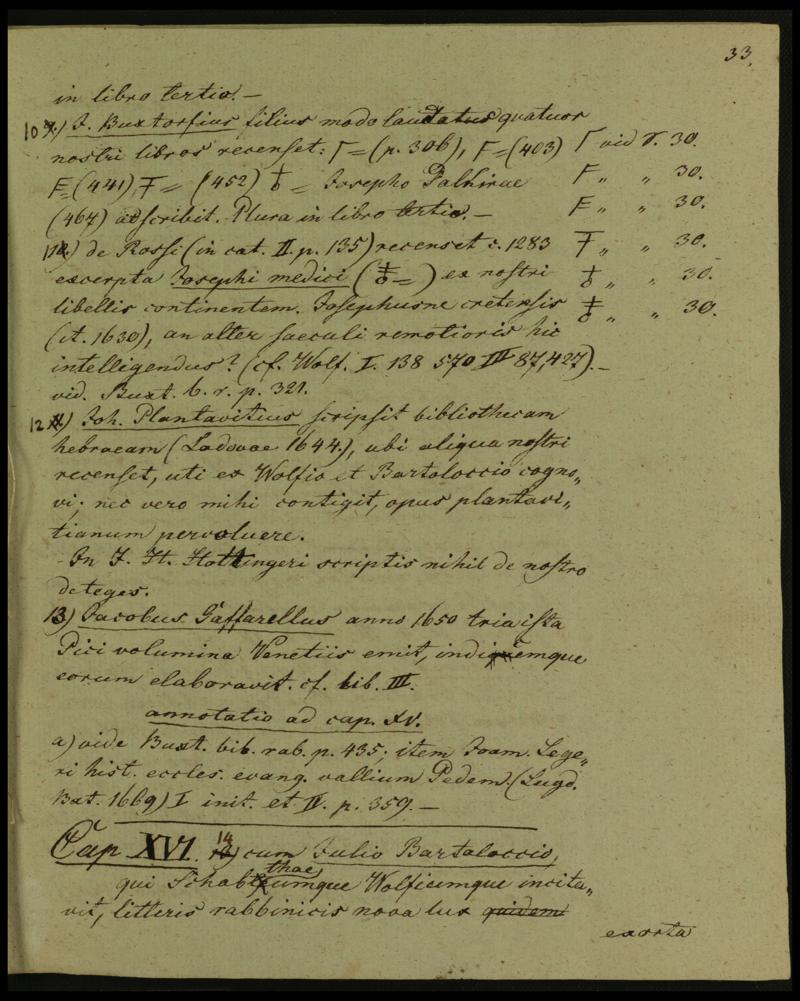 33.
in libro tertio. —
10) J. Buxtorfius filius modo laudatus quatuor
nostri libros recenset: Γ = (p. 306), F = (403) Γ vid r. 30.
(441), (452) Josepho Palhirae F „ „ 30.
(467) adscribit. Plura in libro tertio. — „ „ 30.
11) de Rossi (in cat. II. p. 135) recenset c. 1283 „ „ 30.
excerpta Josephi medici ex nostri „ „ 30.
libellis continentem. Josephusne cretensis „ „ 30.
(ct. 1630), an alter saeculi remotioris hic
intelligendus? (cf. Wolf. I. 138 570 III 87, 427). —
vid. Buxt. b. r. p. 321.
12) Joh. Plantavitius scripsit bibliothecam
hebraeam (Lodovae 1644.), ubi aliqua nostri
recenset, uti ex Wolfio et Bartoloccio cogno„
vi; nec vero mihi contigit, opus plantavi„
tianum pervoluere.
In J. H. Hottingeri scriptis nihil de nostro
deteges.
13) Jacobus Gaffarellus anno 1650 tria ista
Pici volumina Venetiis emit, indicemque
eorum elaboravit. cf. lib. III.
annotatio ad cap. XV.
a) vide Buxt. bib. rab. p. 435; item Joam. Lege„
ri hist. eccles. evang. vallium Pedem. (Lugd.
Bat. 1669) I init. et II. p. 359. —
Cap XVI. 14) cum Julio Bartoloccio,
qui Schabthaeumque Wolfiumque incita„
vit, litteris rabbinicis nova lux quidem
exorta